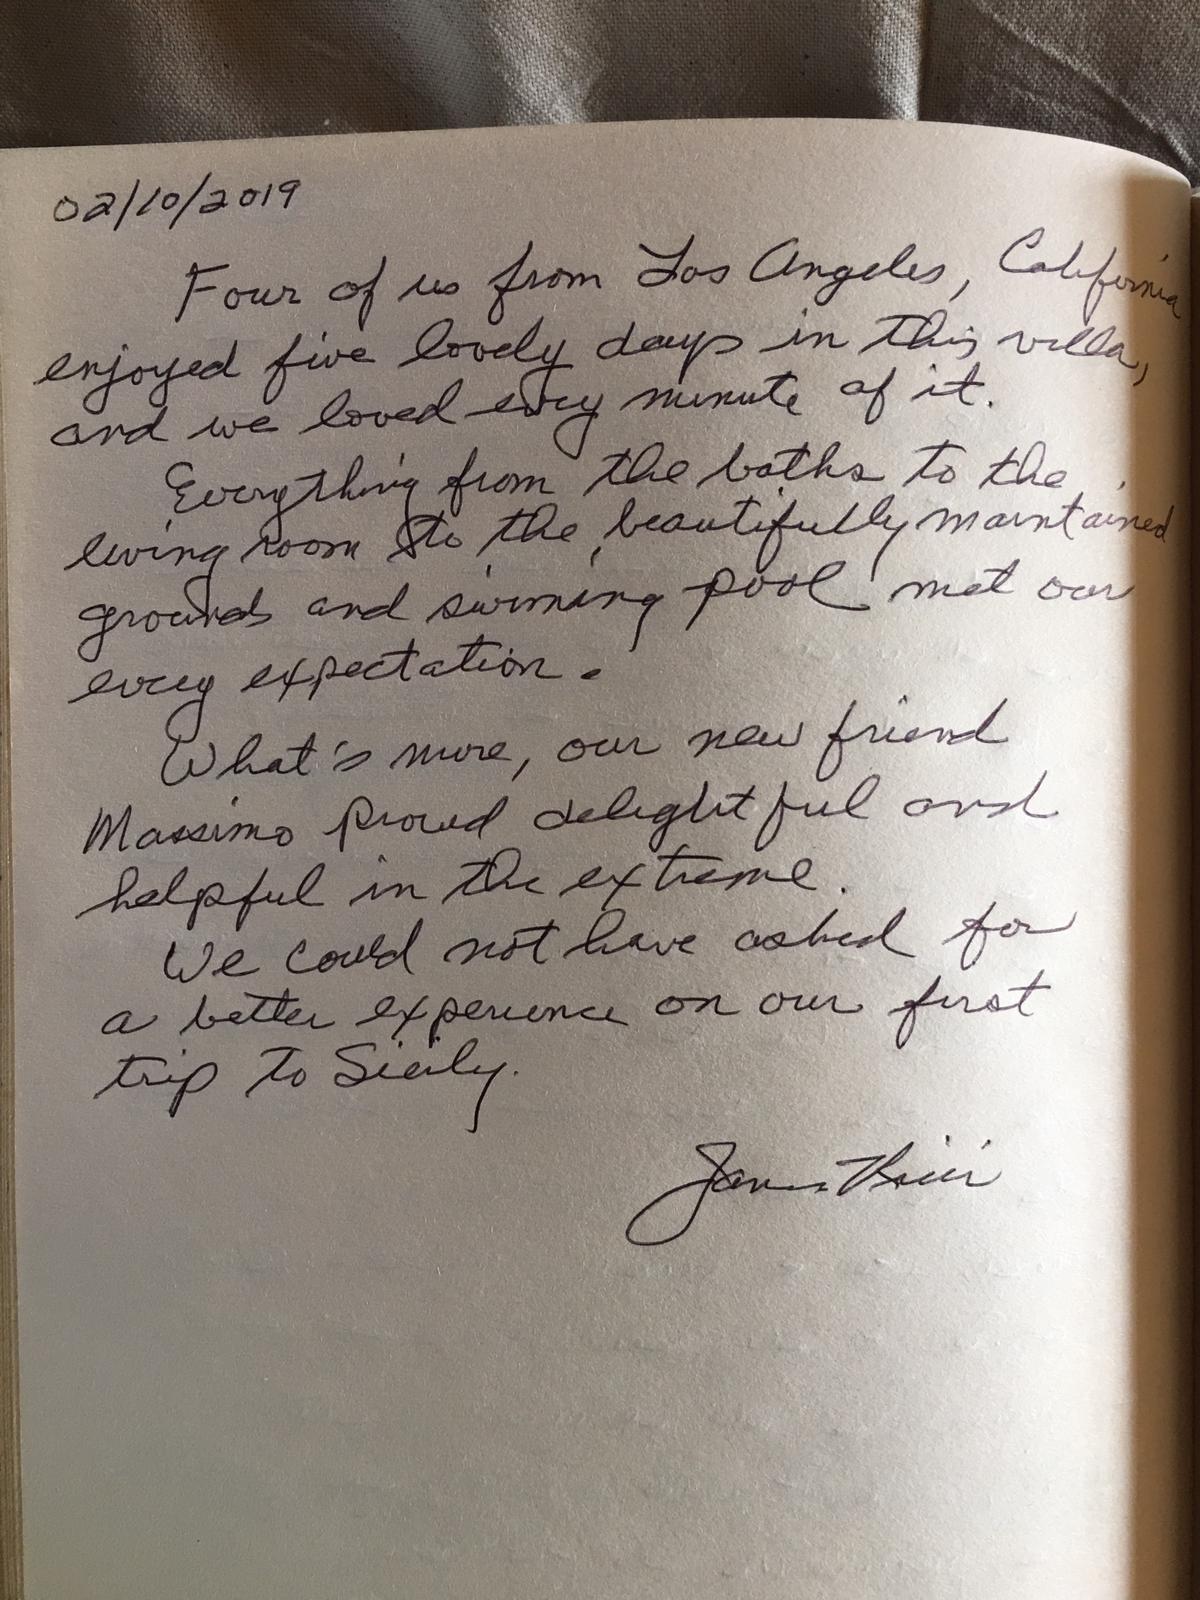 02/10/2019
Four of us from Los Angeles, California
enjoyed five lovely days in this villa,
and we loved every minute of it.
Everything from the baths to the
living room to the beautifully maintained
grounds and swimming pool met our
every expectation.
What's more, our new friend
Massimo proved delightful and
helpful in the extreme.
We could not have asked for
a better experience on our first
trip to Sicily.
James